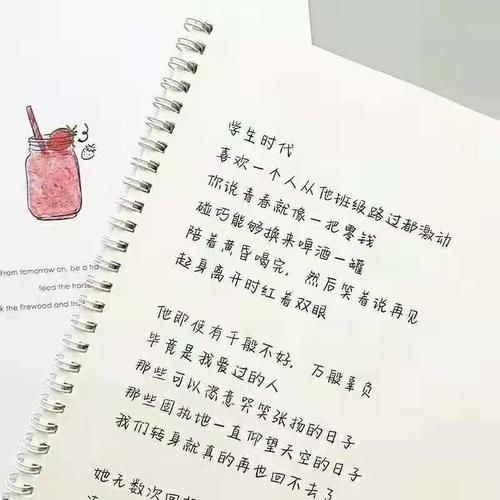 From tomorrow on, be a ha
feed the hors
k the firewood and tra
学生时代
喜欢一个人从他班级路过都激动
你说青春就像一把零钱
碰巧能够换来啤酒一罐
陪着黄昏喝完，然后笑着说再见
起身离开时红着双眼
他即使有千般不好，万般辜负
毕竟是我爱过的人
那些可以恣意哭笑张扬的日子
那些固执地一直仰望天空的日子
我们转身就真的再也回不去了
她无数次回